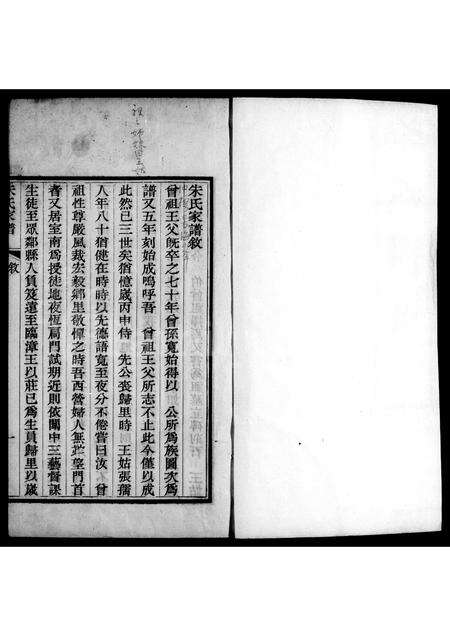 朱氏家譜敘
曾祖王父既卒之七十年曾孫寬始得以　公所為族圖次為
譜又五年刻始成嗚呼吾　曾祖王父所志不止此今僅以成
此然已三世矣猶憶歲丙申侍　先公喪歸里時　王姑張孺
人年八十猶健在時時以先德語寬至夜分不倦嘗曰汝　曾
祖性尊嚴風裁宏毅鄉里敬憚之時吾西營婦人無粧望門首
者又居室南為授徒地夜恆扃門試期近則依闈中三藝督課
生徒至眾鄰縣人負笈遠至臨漳王以莊已為生員歸里以歲
朱氏家譜　敘　一